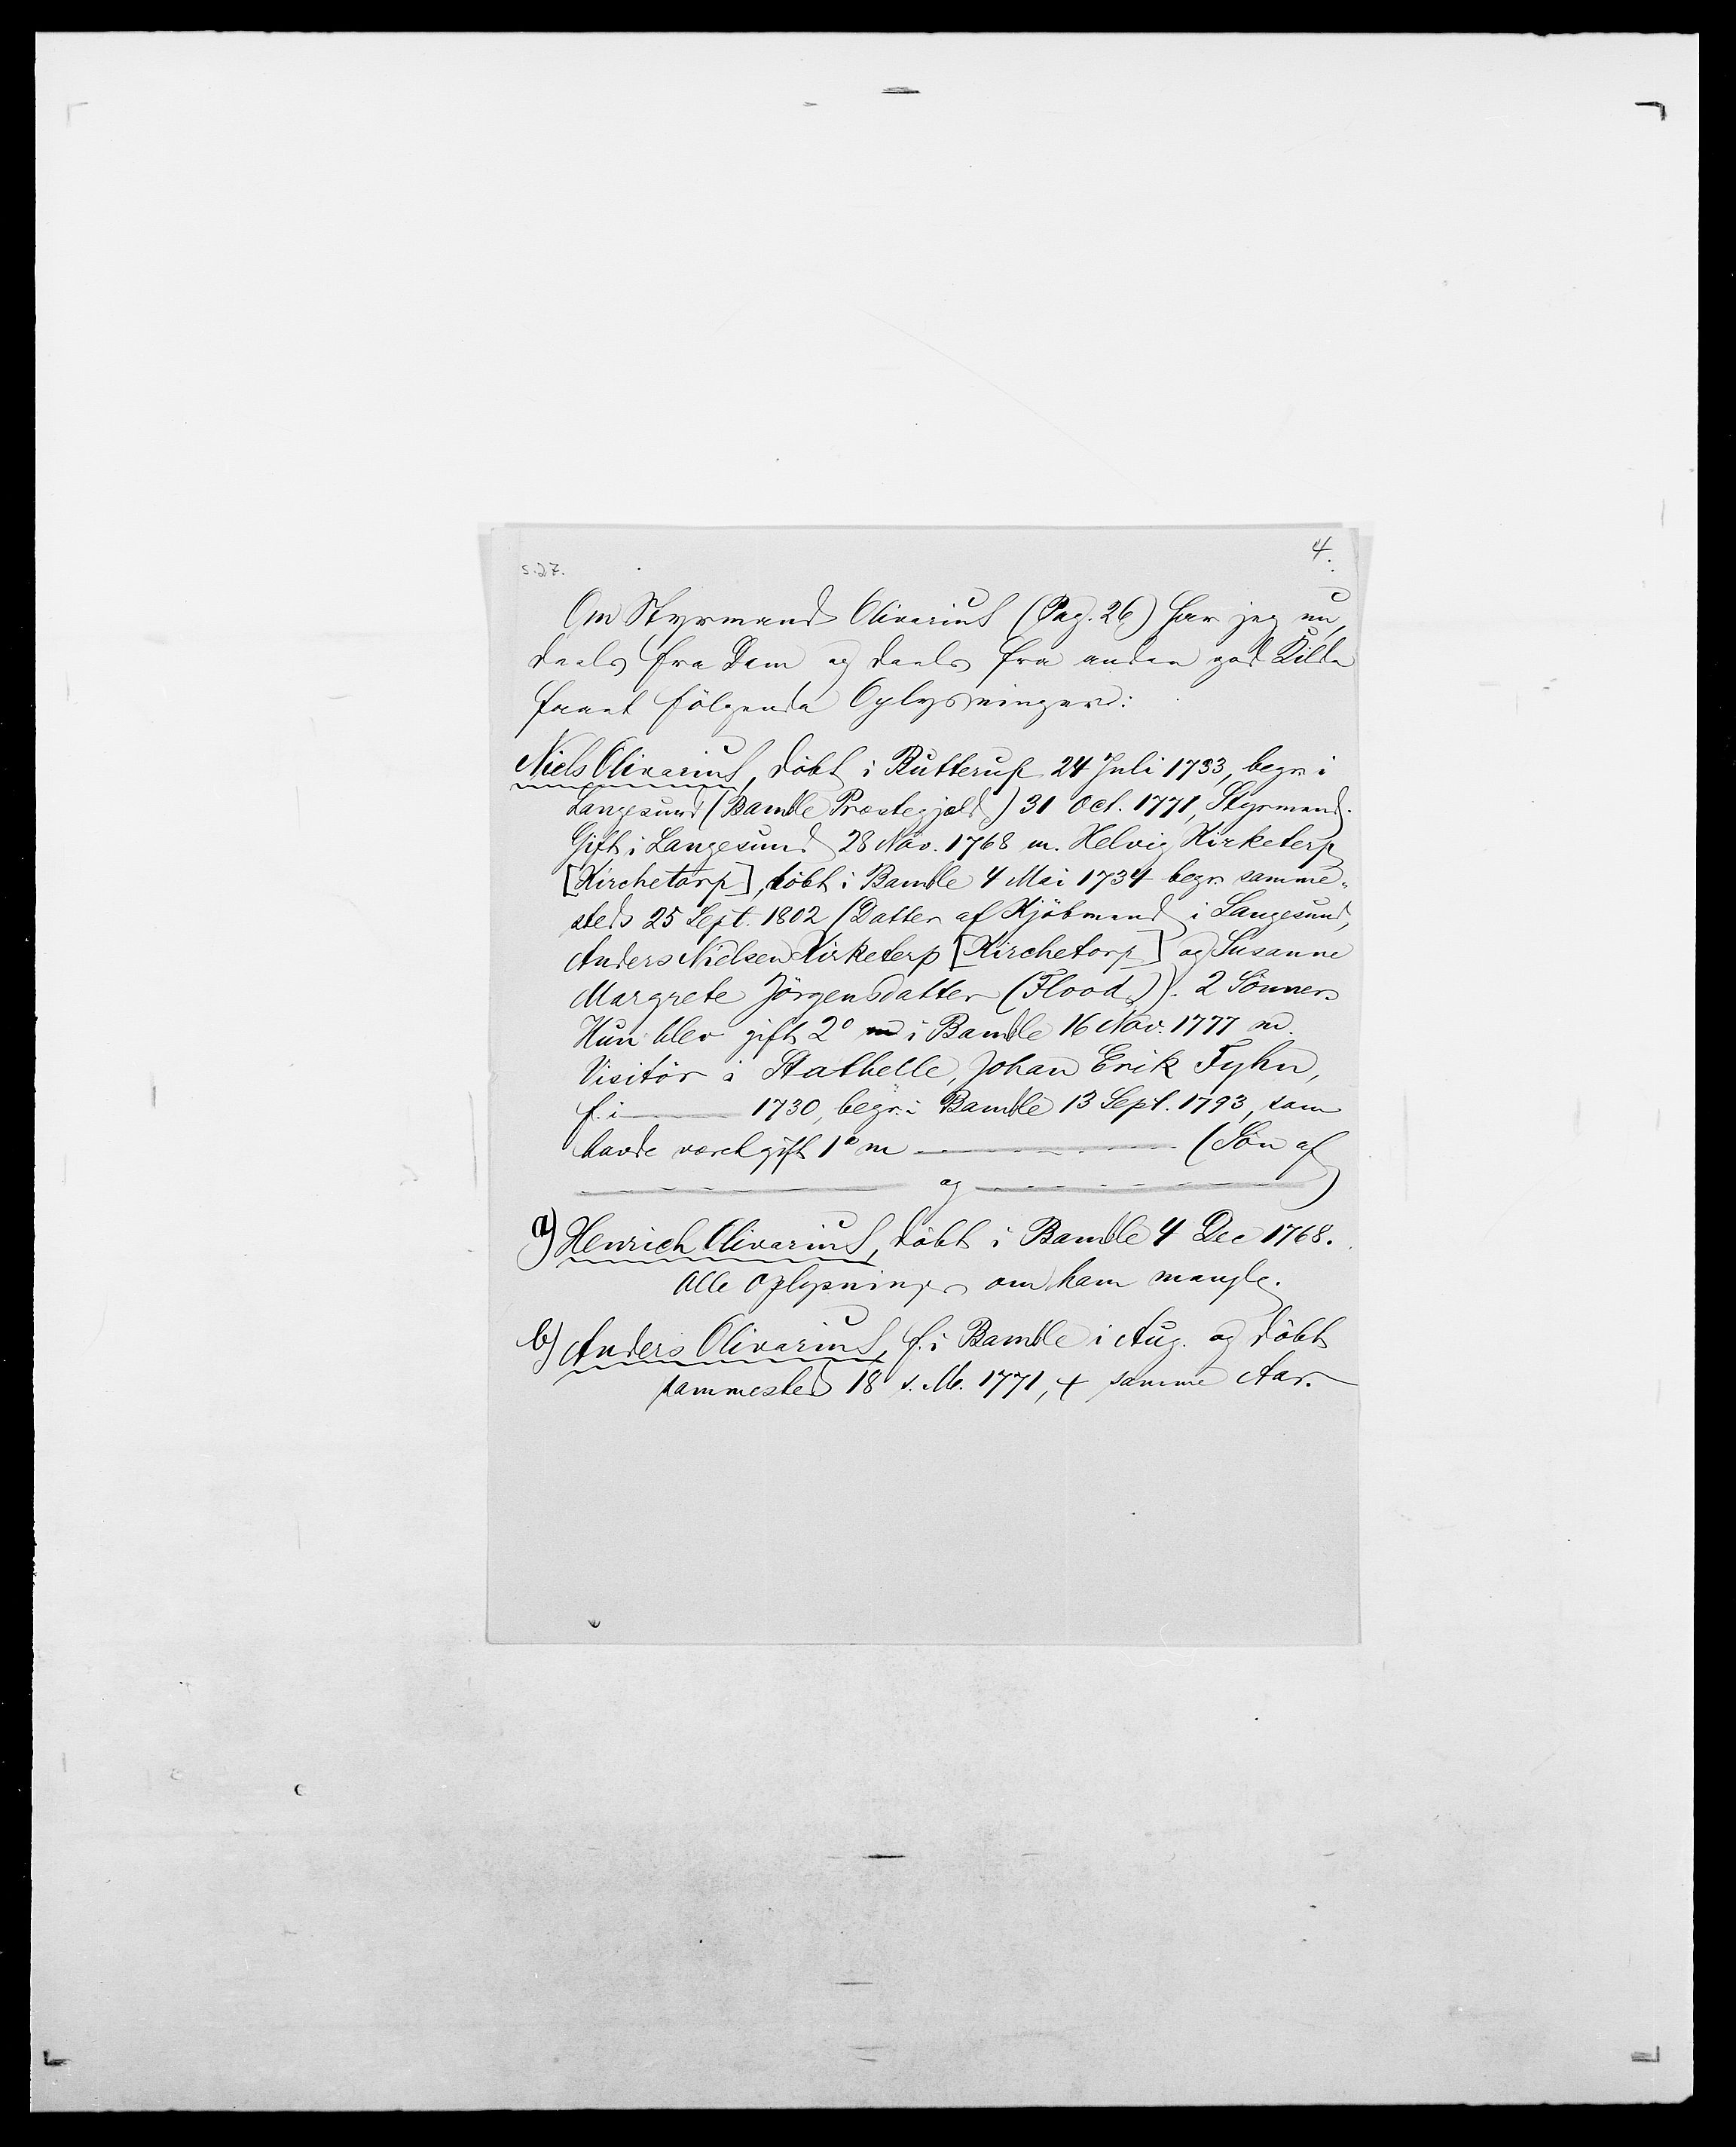 4.
s. 27.
Om Styrmand Olivarius (Pag. 26) har jeg nu,
deels fra Dem og deels fra anden god Kilde
faaet følgende Oplysninger:
Niels Olivarius, döbt i Butterup 24 Juli 1733, begr. i
Langesund (Bamble Præstegjæld) 31 Oct. 1771, Styrmand.
Gift i Langesund 28 Nov. 1768 m. Helvig Kirketerp
[Kirchetorp], döbt i Bamble 4 Mai 1734 begr. samme-
steds 25 Sept. 1802 (Datter af Kjöbmand i Langesund,
Anders Nielsen Kirketerp [Kirchetorp] og Susanne
Margrete Jörgensdatter (Flood)). 2 Sönner.
Hun blev gift 2° i Bamble 16 Nov. 1777 m.
Visitör i Stathelle, Johan Erik Tyhn,
f. i ——— 1730, begr. i Bamble 13 Sept. 1793, som
havde været gift 1° m ——— (Sön af
——— og ———)
a) Henrich Olivarius, döbt i Bamble 4 Dec 1768.
Alle Oplysninger om ham mangle.
b) Anders Olivarius, f. i Bamble i Aug. og döbt
sammesteds 18 s. M. 1771, + samme Aar.